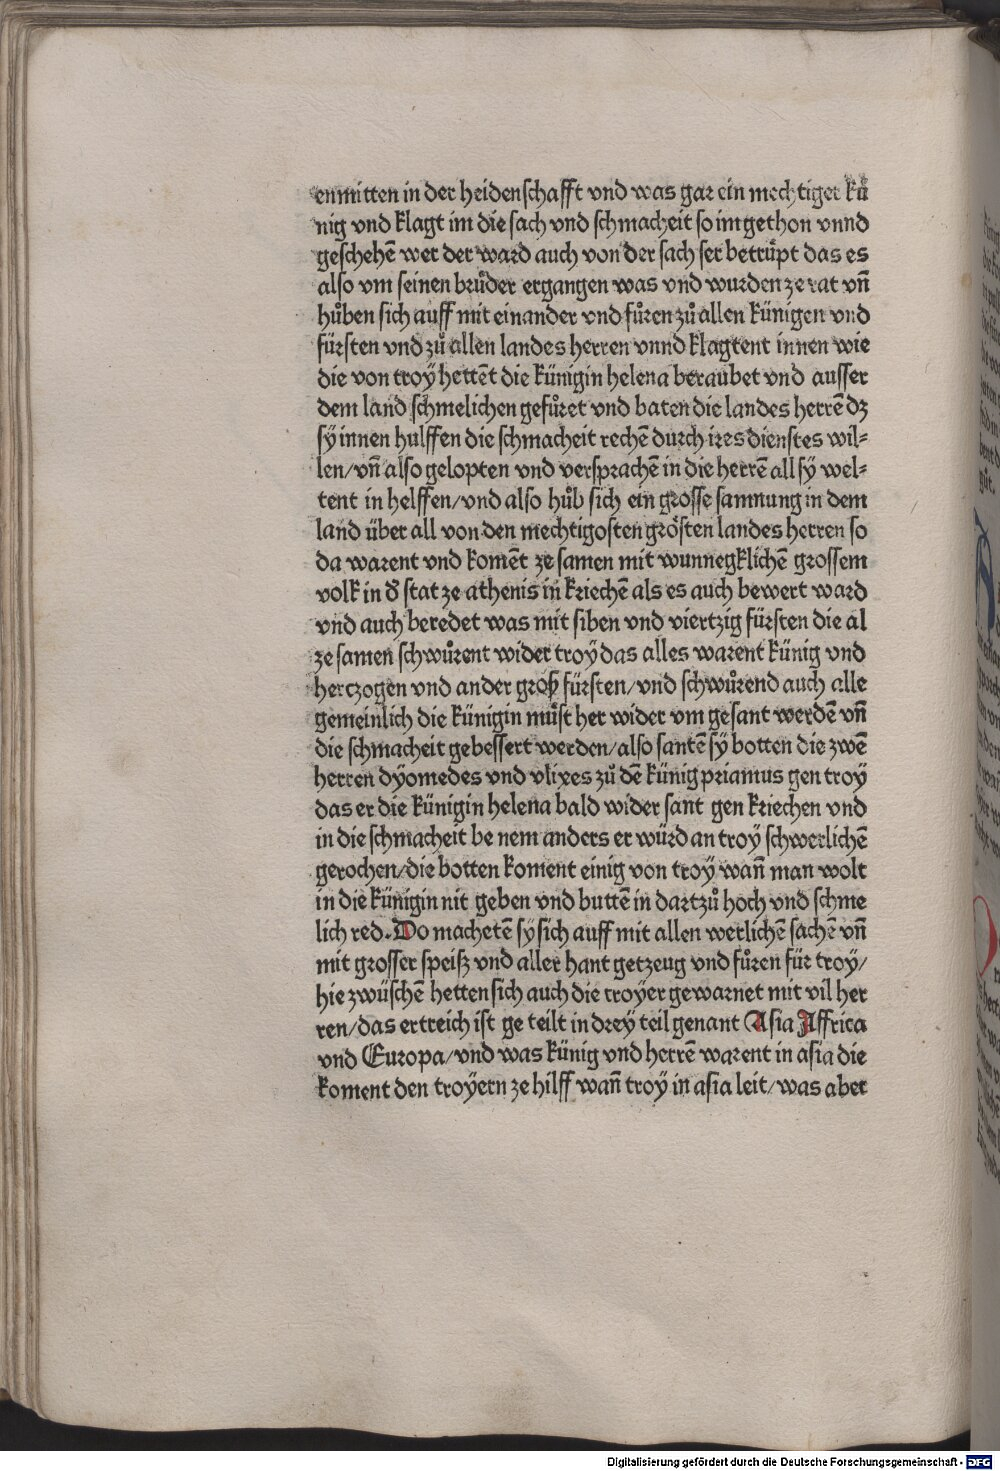 enmitten in der heidenschafft vnd was gar ein mechtiger kü
nig vnd klagt im die sach vnd schmacheit so im gethon vnnd
geschehē wer der ward auch von der sach ser betruͤpt das es
also vm seinen bruͦder ergangen was vnd wurden ze rat vn̄
huͦben sich auff mit einander vnd fuͦren zuͦ allen künigen vnd
fürsten vnd zuͦ allen landes herren vnnd klagtent innen wie
die von troÿ hettēt die künigin helena beraubet vnd ausser
dem land schmelichen gefuͦret vnd baten die landes herrē dz
sÿ innen hulffen die schmacheit rechē durch ires dienstes wil⸗
len/vn̄ also gelopten vnd versprachē in die herrē all sÿ wel⸗
tent in helffen/vnd also huͦb sich ein grosse samnung in dem
land über all von den mechtigosten groͤsten landes herren so
da warent vnd komēt ze samen mit wunnegklichē grossem
volk in d̕ stat ze athenis in kriechē als es auch bewert ward
vnd auch beredet was mit siben vnd viertzig fürsten die al
ze samen schwuͦrent wider troÿ das alles warent künig vnd
hertzogen vnd ander groß fürsten/vnd schwuͦrend auch alle
gemeinlich die künigin muͦst her wider vm gesant werdē vn̄
die schmacheit gebessert werden/also santē sÿ botten die zwē
herren dÿomedes vnd vlixes zuͦ dē künig priamus gen troÿ
das er die künigin helena bald wider sant gen kriechen vnd
in die schmacheit be nem anders er würd an troÿ schwerlichē
gerochen/die botten koment einig von troÿ wan̄ man wolt
in die künigin nit geben vnd buttē in dartzuͦ hoch vnd schme
lich red. Do machetē sÿ sich auff mit allen werlichē sachē vn̄
mit grosser speisz vnd aller hant getzeug vnd fuͦren für troÿ/
hie zwüschē hetten sich auch die troÿer gewarnet mit vil her
ren/das ertreich ist ge teilt in dreÿ teil genant Asia Affrica
vnd Europa/vnd was künig vnd herrē warent in asia die
koment den troÿern ze hilff wan̄ troÿ in asia leit/was aber
Digitalisierung gefördert durch die Deutsche Forschungsgemeinschaft - DFG